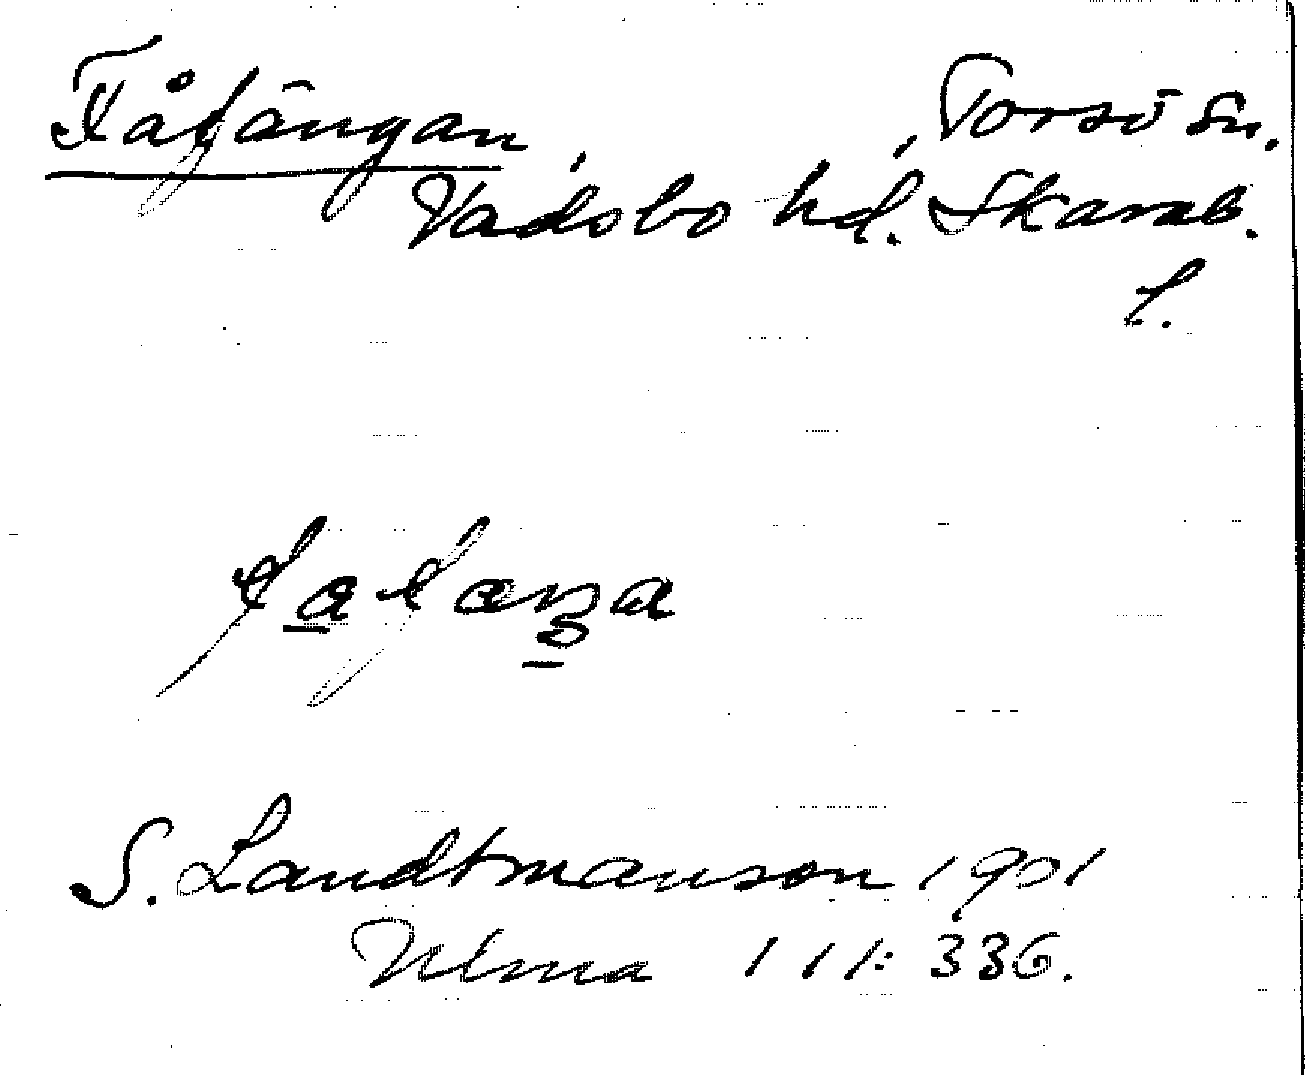 Fåfängan, Torsö sn.
Vadsbo hd. Skarab.
l.
fafæŋa
S. Landtmanson 1901
Ulma 111: 336.